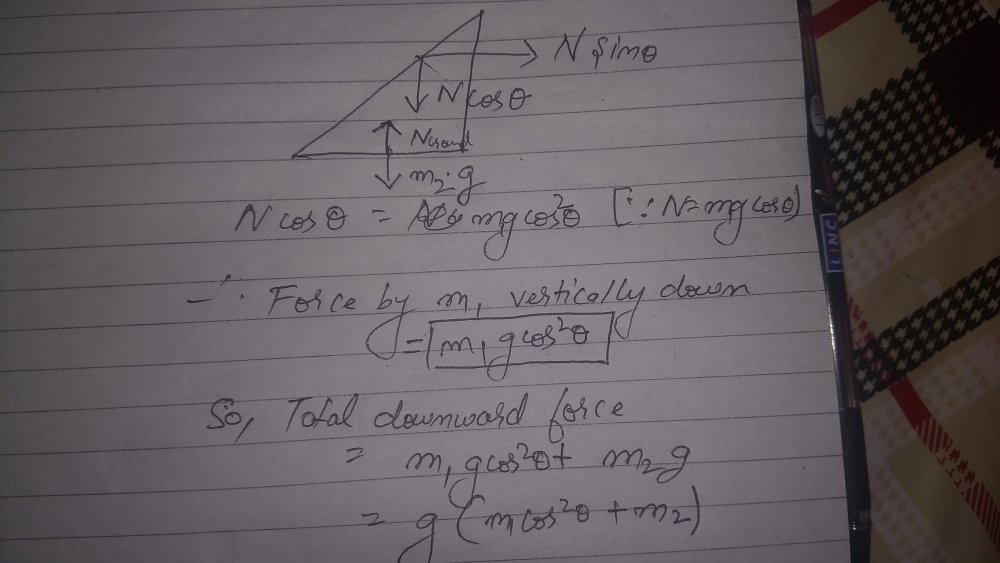 N sinθ
N cosθ
m₂.g
N cosθ = mg cos²θ [∵ N = mg cosθ)
∴ Force by m₁ vertically down
= m₁ g cos²θ
So, Total downward force
= m₁ g cos²θ + m₂ g
= g (m₁ cos²θ + m₂)
LINC